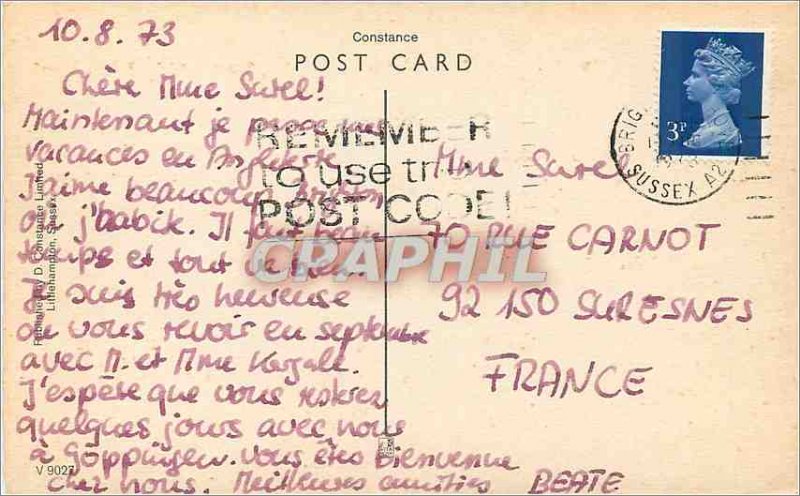 10.8.73
Constance
POST CARD
Chère Mme Surel!
Maintenant je passe mes
vacances en Angleterre
J'aime beaucoup Brighton
où j'habite. Il fait beau
temps et tout va bien.
Je suis très heureuse
ou vous revoir en septembre
avec M. et Mme
J'espère que vous resterez
quelques jours avec nous
à Göppingen. Vous êtes bienvenue
chez nous. Meilleures amitiés BEATE
Mme Surel
70 RUE CARNOT
92 150 SURESNES
FRANCE
REMEMBER
to use the
POST CODE
3P
BRIG
SUSSEX A2
CPAPHIL
Published by D. Constance Limited,
Littlehampton, Sussex.
V 9027